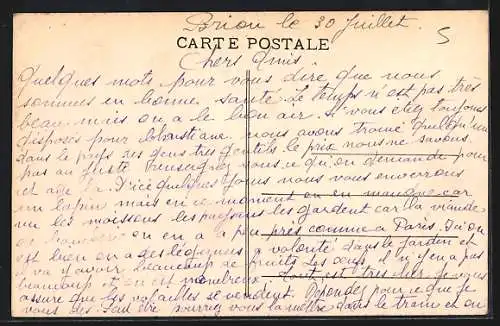 Brion le 30 Juillet
5
CARTE POSTALE
Chers Amis
Quelques mots pour vous dire que nous
sommes en bonne santé Le temps n'est pas très
beau mais on a le bon air. Si vous êtes toujours
disposés pour nous avons trouvé quelqu'un
dans le pays des gens très gentils le prix nous ne savons
pas au juste vous ce qu'on demande pour
et D'ici quelques jours nous vous enverrons
un lapin mais en ce moment on en manque car
les moissons les paysans les gardent car la viande
on en a peu près comme à Paris. Ici on
est bien on a des légumes à volonté dans le jardin et
il va y avoir beaucoup de fruits Les il n'y en a pas
beaucoup et on est nombreux tout est très cher je vous
assure que les volailles se vendent. Répondez pour ce que je
vous dis. pourrez vous la mettre dans le train et on